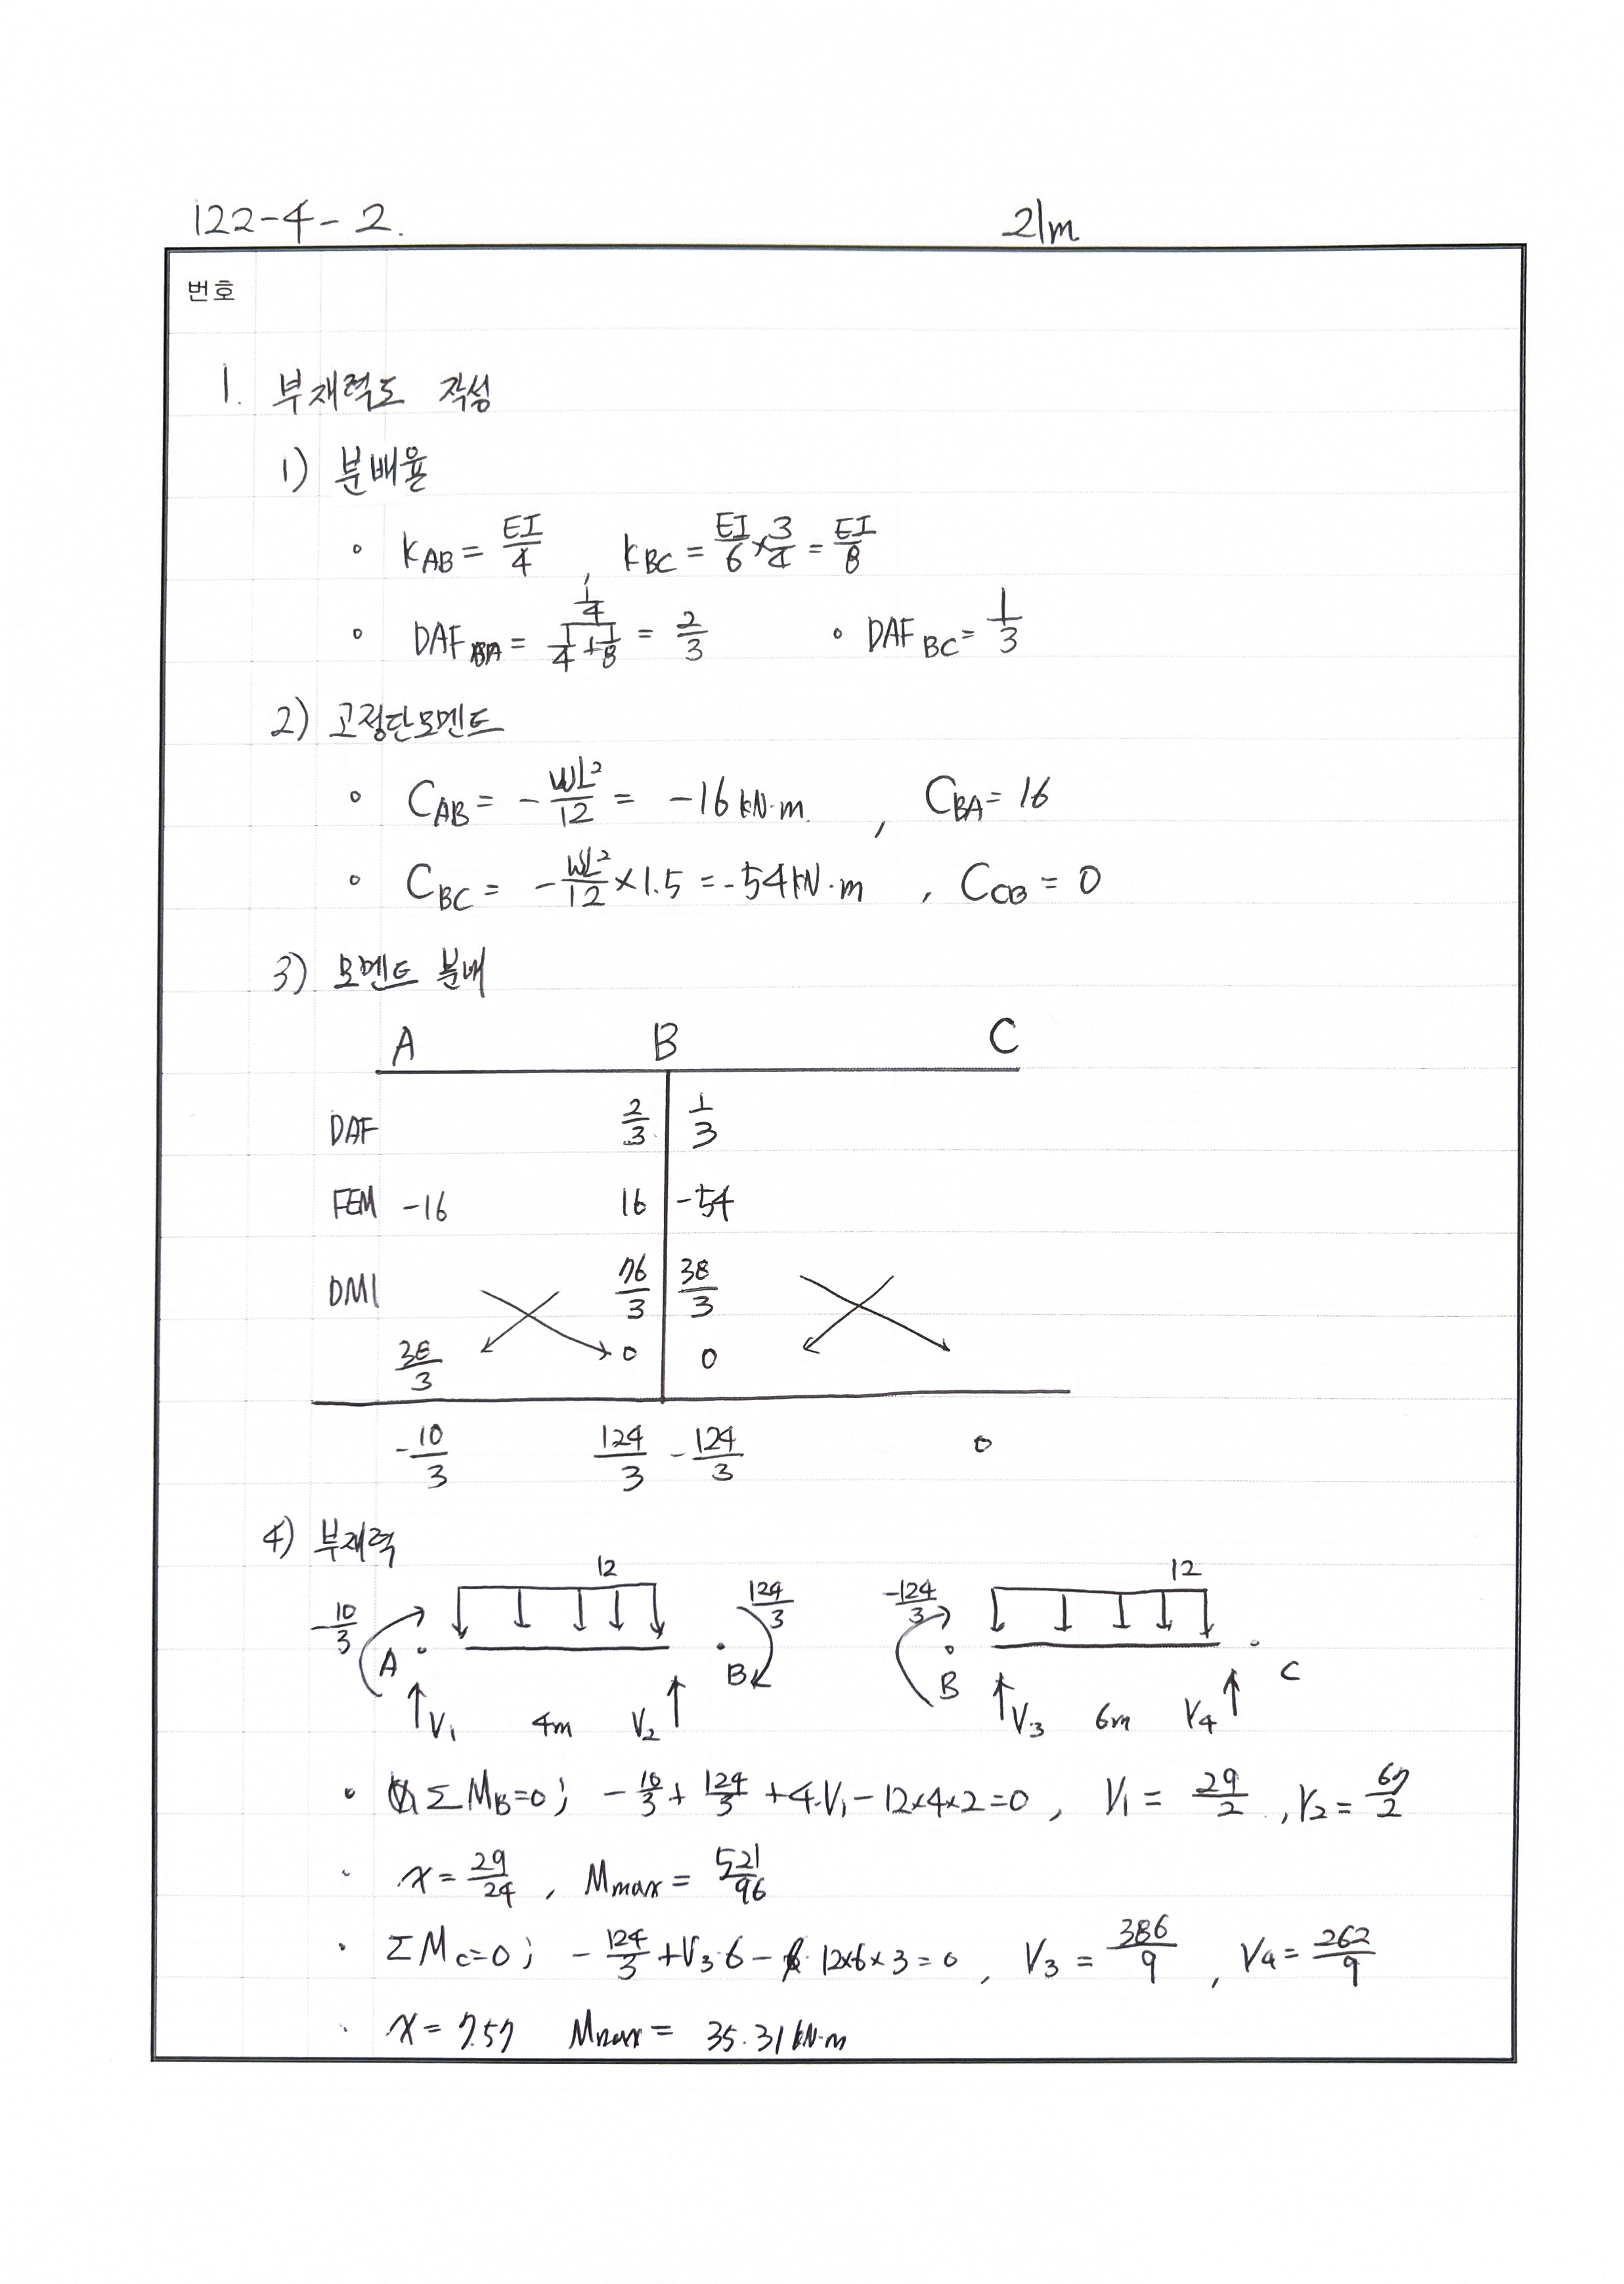 122-4-2. 21m
번호
1. 부재력도 작성
1) 분배율
∘ K_AB = EI/4 , K_BC = EI/6 × 3/4 = EI/8
∘ DAF_BA = (1/4)/(1/4+1/8) = 2/3 ∘ DAF_BC = 1/3
2) 고정단모멘트
∘ C_AB = -WL²/12 = -16 kN·m , C_BA = 16
∘ C_BC = -WL²/12 × 1.5 = -54 kN·m , C_CB = 0
3) 모멘트 분배
A B C
DAF 2/3 1/3
FEM -16 16 -54
DM1 76/3 38/3
38/3 0 0
-10/3 124/3 -124/3 0
4) 부재력
12 12
-10/3 124/3 -124/3
A B B C
V₁ 4m V₂ V₃ 6m V₄
∘ ΣM_B=0 ; -10/3 + 124/3 + 4·V₁ - 12×4×2 = 0 , V₁ = 29/2 , V₂ = 67/2
· x = 29/24 , Mmax = 521/96
· ΣM_C=0 ; -124/3 + V₃·6 - 12×6×3 = 0 , V₃ = 386/9 , V₄ = 262/9
· x = 7.57 Mmax = 35.31 kN·m